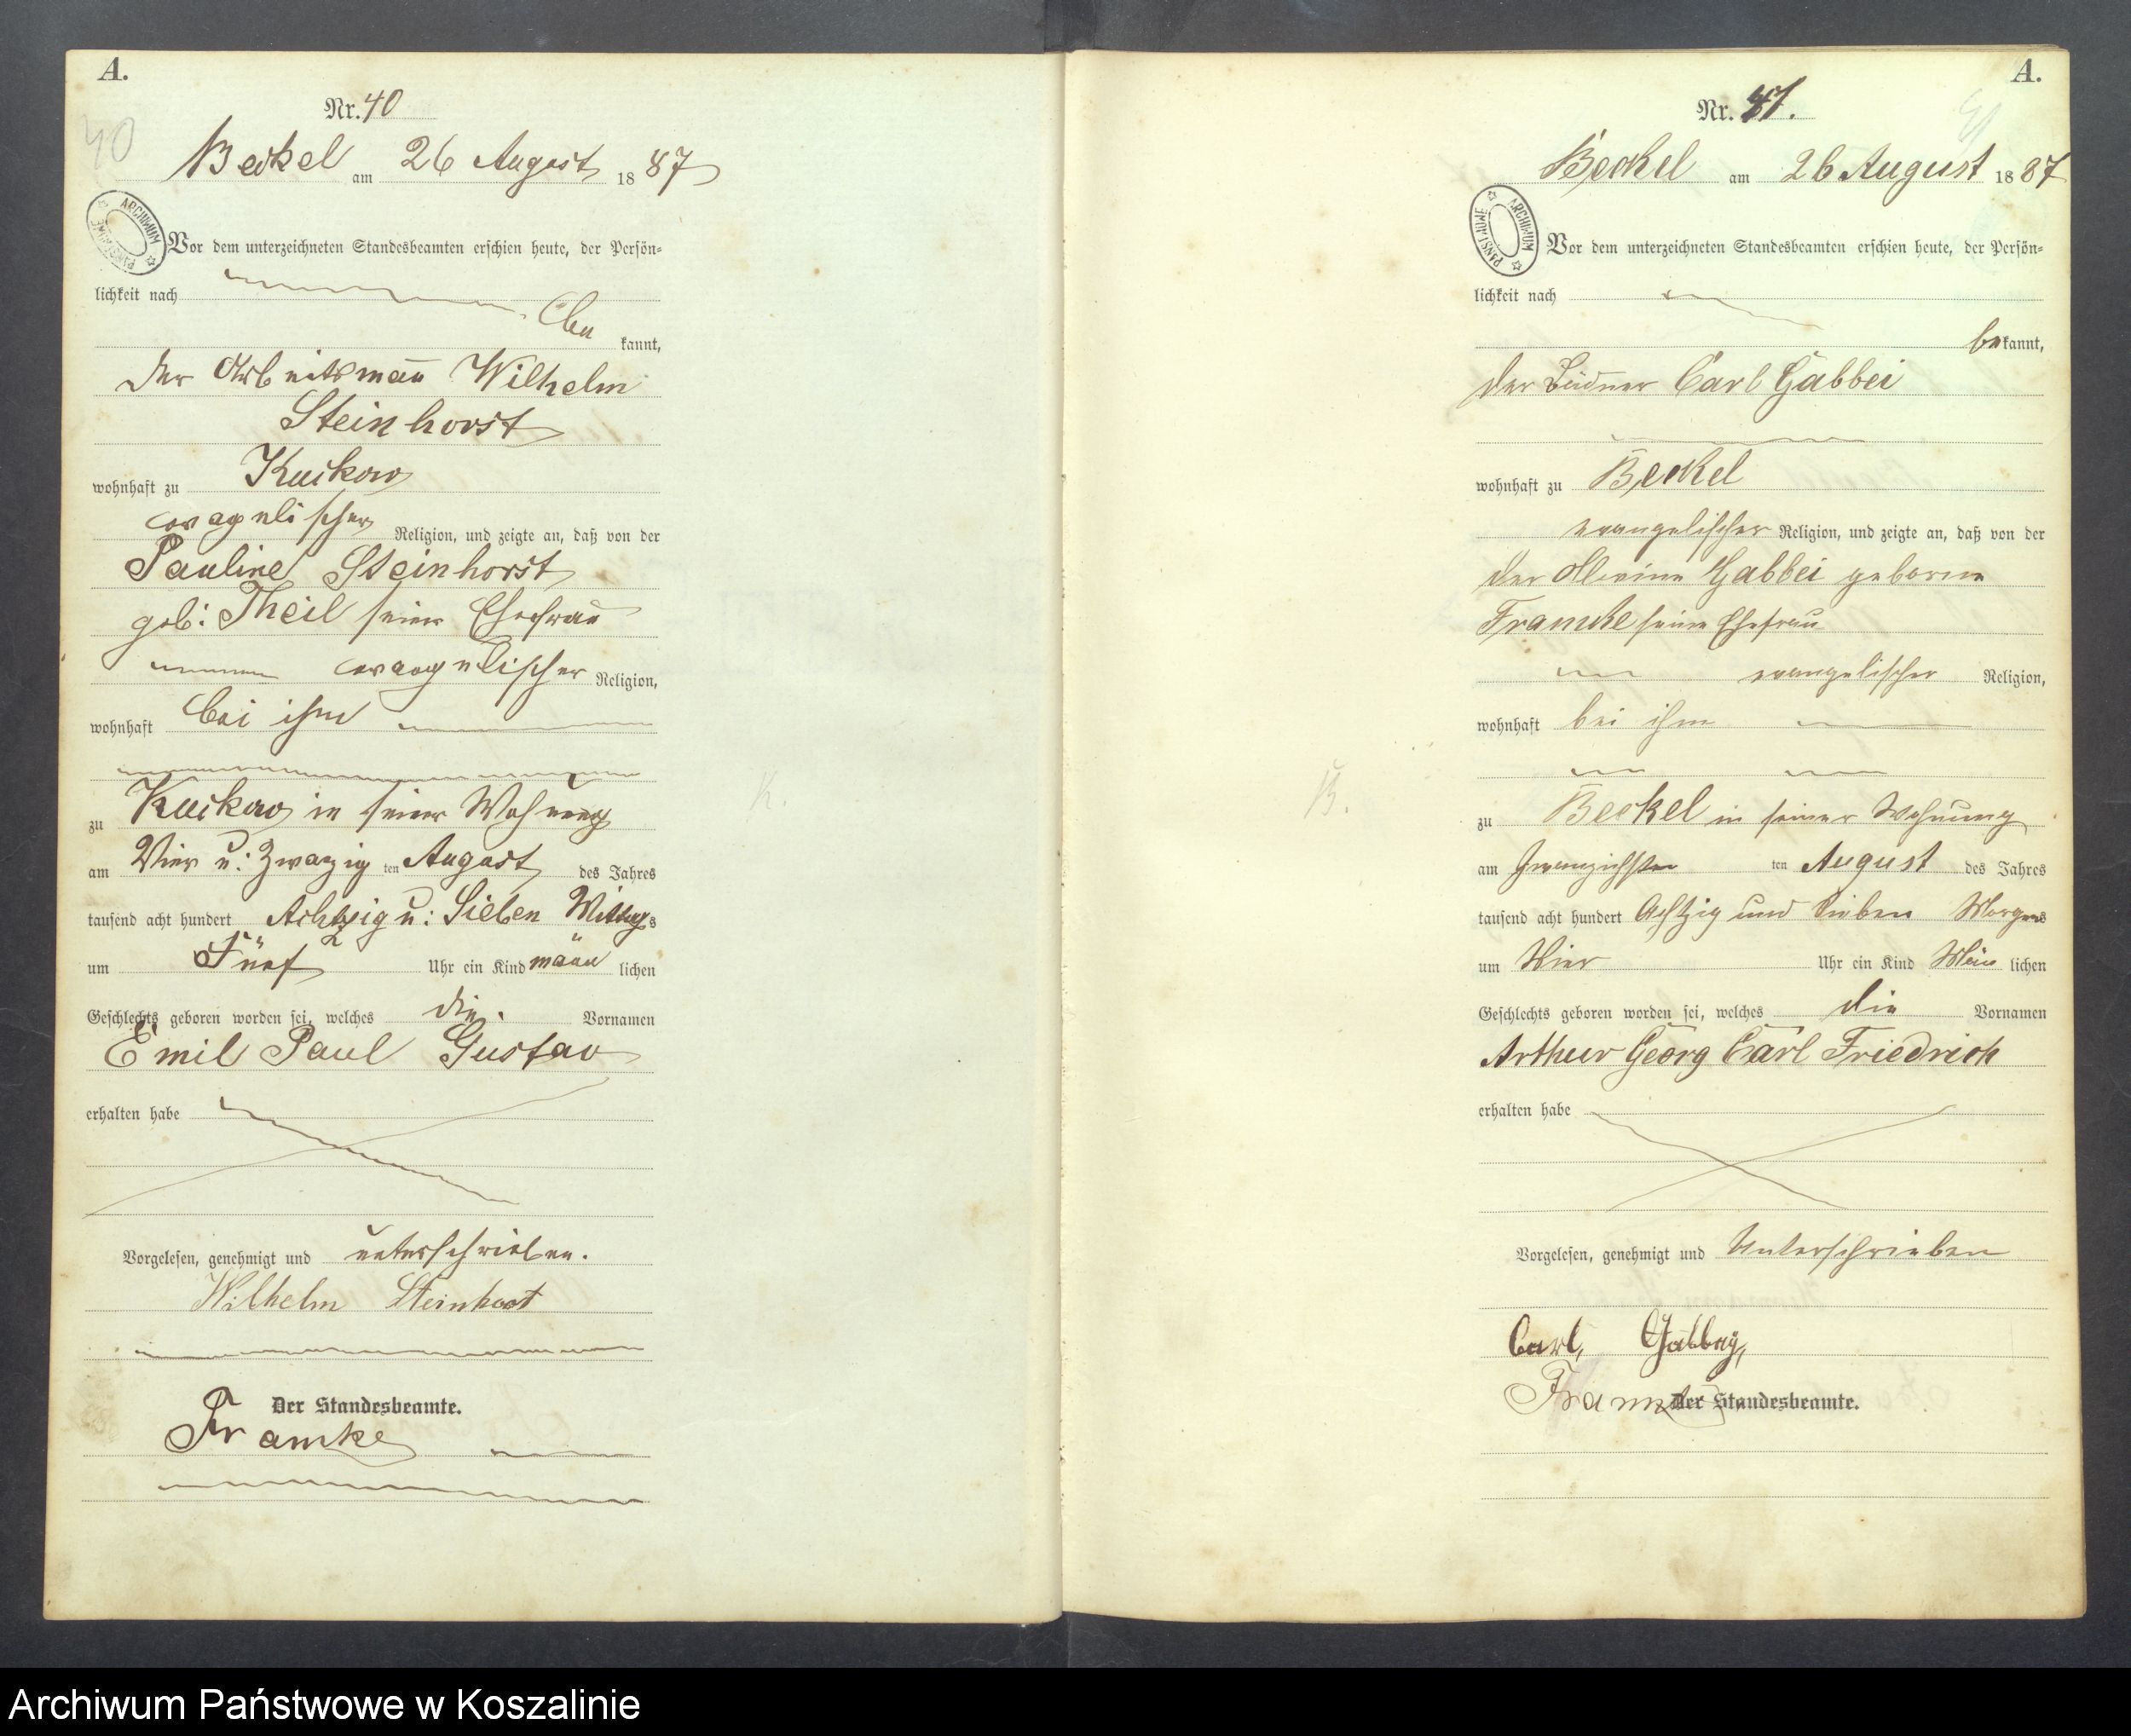 A.
Nr. 40
40
Beckel am 26 August 1887
ARCHIWUM PAŃSTWOWE
Vor dem unterzeichneten Standesbeamten erschien heute, der Persön-
lichkeit nach
be kannt,
der Arbeitsmann Wilhelm
Steinhorst
wohnhaft zu Kuckow
evagelischer Religion, und zeigte an, daß von der
Pauline Steinhorst
geb: Theil seiner Ehefrau
evangelischer Religion,
wohnhaft bei ihm
zu Kuckow in seiner Wohnung
am Vier u: Zwazig ten August des Jahres
tausend acht hundert Achtzig u: Sieben Mittags
um Fünf Uhr ein Kind männ lichen
Geschlechts geboren worden sei, welches die Vornamen
Emil Paul Gustav
erhalten habe
Vorgelesen, genehmigt und unterschrieben.
Wilhelm Steinhorst
Der Standesbeamte.
Framke
K.
A.
Nr. 41.
41
Beckel am 26 August 1887
ARCHIWUM PAŃSTWOWE
Vor dem unterzeichneten Standesbeamten erschien heute, der Persön-
lichkeit nach
bekannt,
der Büdner Carl Gabbei
wohnhaft zu Beckel
evangelischer Religion, und zeigte an, daß von der
der Gabbei geborne
Framke seine Ehefrau
evangelischer Religion,
wohnhaft bei ihm
zu Beckel in seiner Wohnung
am Zwanzichsten ten August des Jahres
tausend acht hundert Achtzig und Sieben Morgens
um Vier Uhr ein Kind lichen
Geschlechts geboren worden sei, welches die Vornamen
Arthur Georg Carl Friedrich
erhalten habe
Vorgelesen, genehmigt und Unterschrieben
Carl, Gabbey,
Framke Der Standesbeamte.
B.
Archiwum Państwowe w Koszalinie